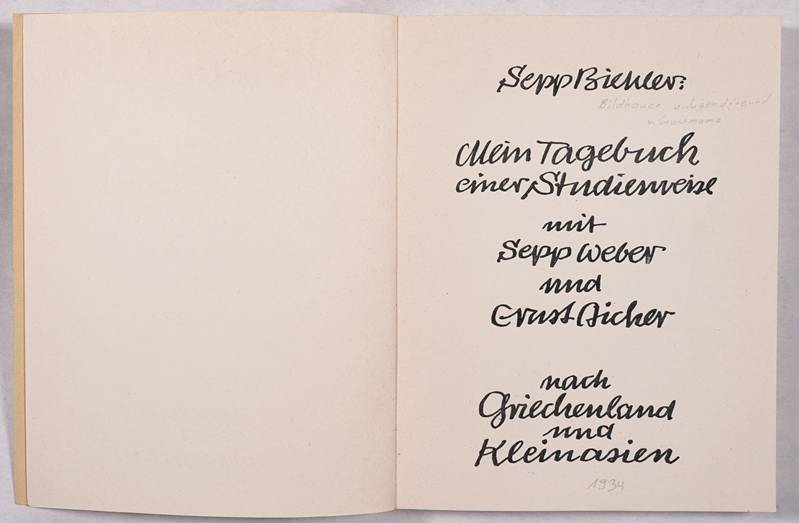 Sepp Biehler:
Bildhauer u. Jugendfreund
v.
Mein Tagebuch
einer Studienreise
mit
Sepp Weber
und
Ernst Aicher
nach
Griechenland
und
Kleinasien
1934